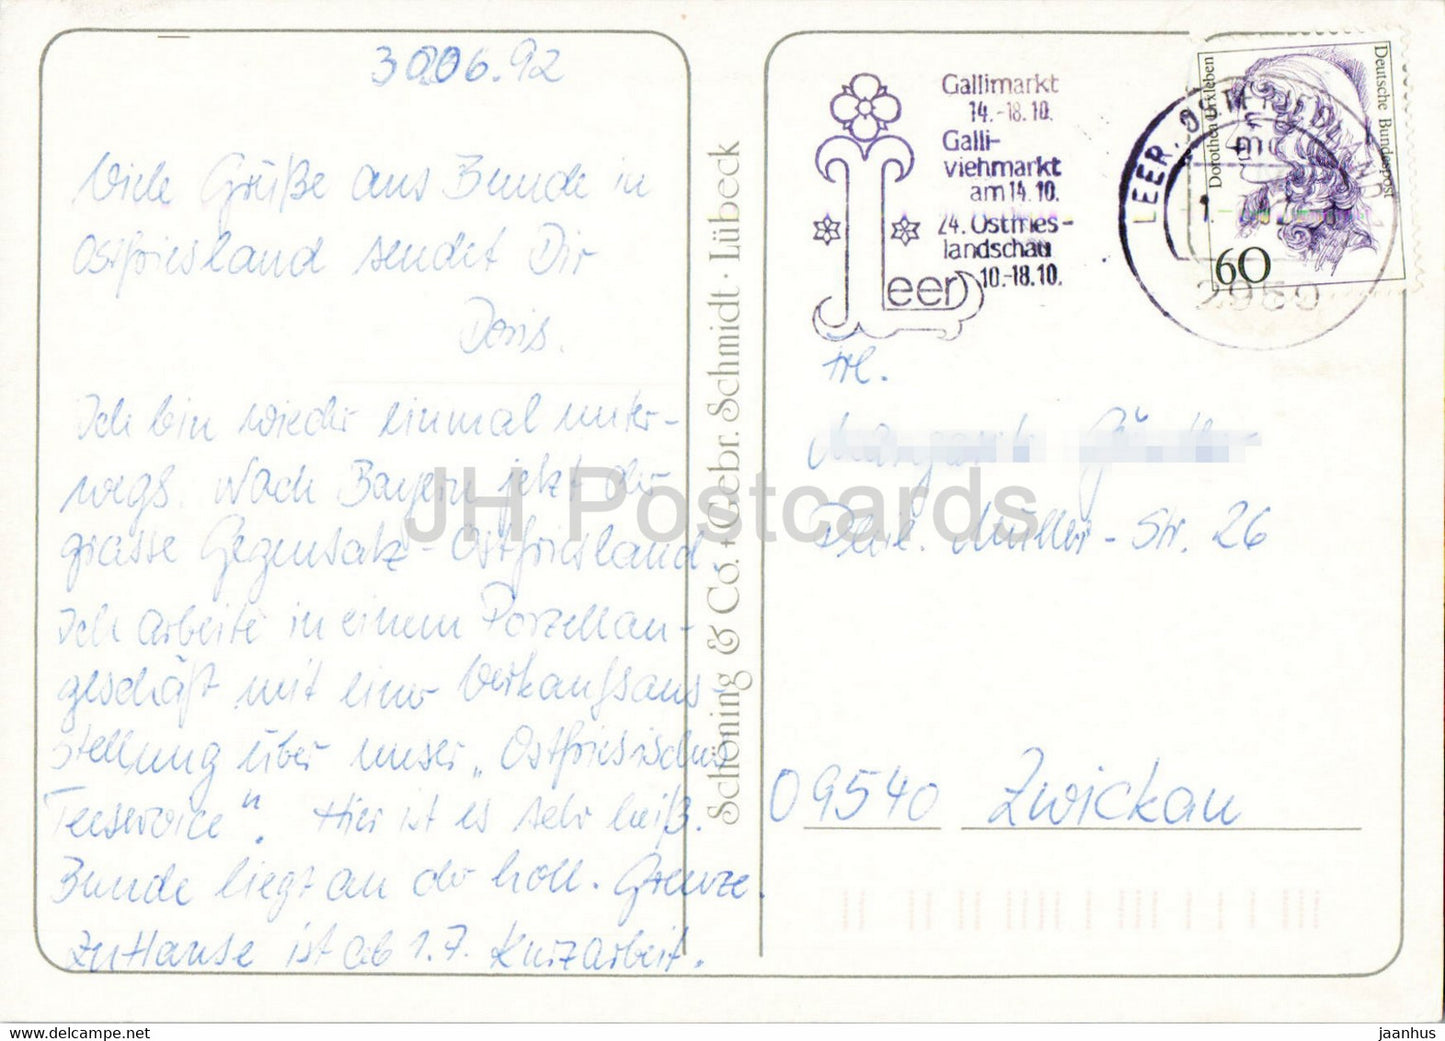 30.06.92
Viele Grüße aus Bunde in
Ostfriesland sendet Dir
Doris.
Ich bin wieder einmal unter-
wegs. Nach Bayern jetzt der
grasse Gegensatz - Ostfriesland.
Ich arbeite in einem Porzellan-
geschäft mit einer Verkaufsaus-
stellung über unser „Ostfriesisches
Teeservice". Hier ist es sehr heiß.
Bunde liegt an der holl. Grenze.
Zu Hause ist ab 1.7. Kurzarbeit.
Schöning & Co. + Gebr. Schmidt · Lübeck
Gallimarkt
14.-18.10.
Galli-
viehmarkt
am 14.10.
24. Ostfries-
landschau
10.-18.10.
Leer
LEER, OSTFRIESLAND
2950
Dorothea Erxleben
Deutsche Bundespost
60
Frl.
Müller-Str. 26
09540 Zwickau
JH Postcards
https://www.delcampe.net
jaanhus